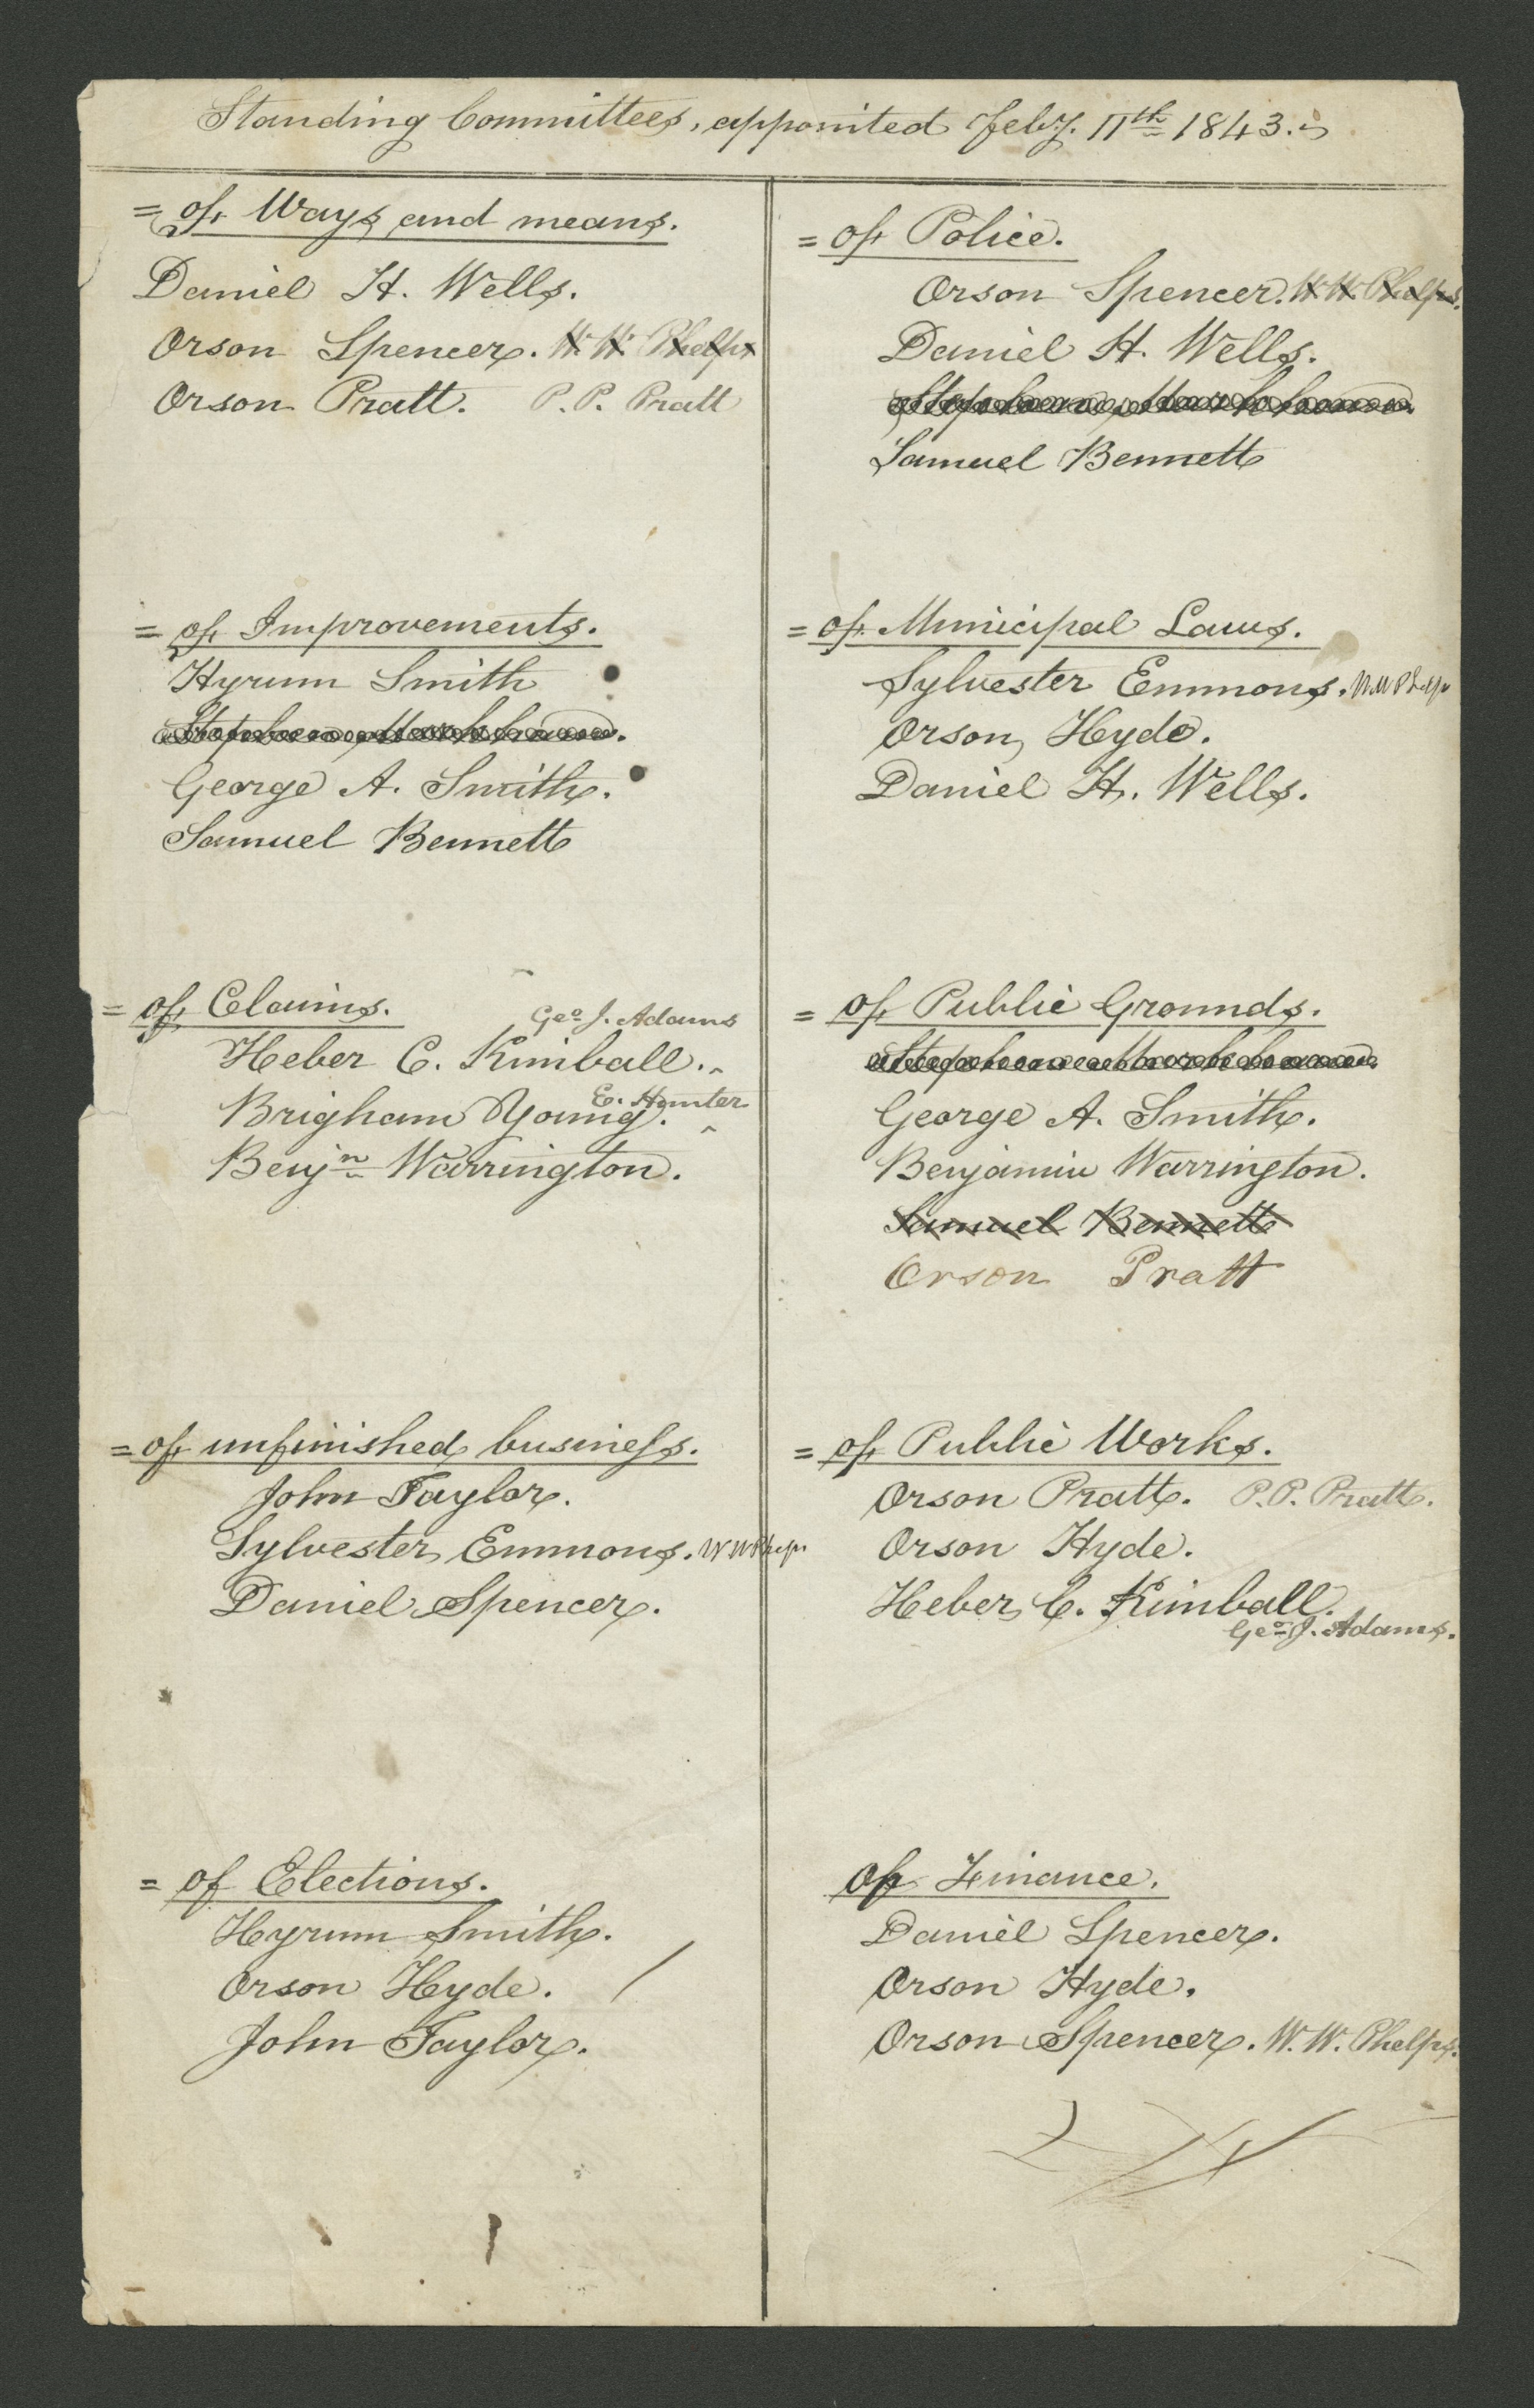 Standing Committees, appointed Feby. 11th 1843.
= of Ways and means.
Daniel H. Wells.
Orson Spencer. W. W. Phelps
Orson Pratt. P. P. Pratt
= of Improvements.
Hyrum Smith
Stephen Markham.
George A. Smith.
Samuel Bennett
= of Claims.
Geo. J. Adams
Heber C. Kimball. ^
E. Hunter
Brigham Young. ^
Benjn Warrington.
= of unfinished business.
John Taylor.
Sylvester Emmons. W W Phelps
Daniel Spencer.
= of Elections.
Hyrum Smith.
Orson Hyde. /
John Taylor.
= of Police.
Orson Spencer. W. W. Phelps.
Daniel H. Wells.
Stephen Markham
Samuel Bennett
= of Municipal Laws.
Sylvester Emmons. W W Phelps
Orson Hyde.
Daniel H. Wells.
= of Public Grounds.
Stephen Markham
George A. Smith.
Benjamin Warrington.
Samuel Bennett
Orson Pratt
= of Public Works.
Orson Pratt. P. P. Pratt.
Orson Hyde.
Heber C. Kimball.
Geo. J. Adams.
Of Finance.
Daniel Spencer.
Orson Hyde.
Orson Spencer. W. W. Phelps.